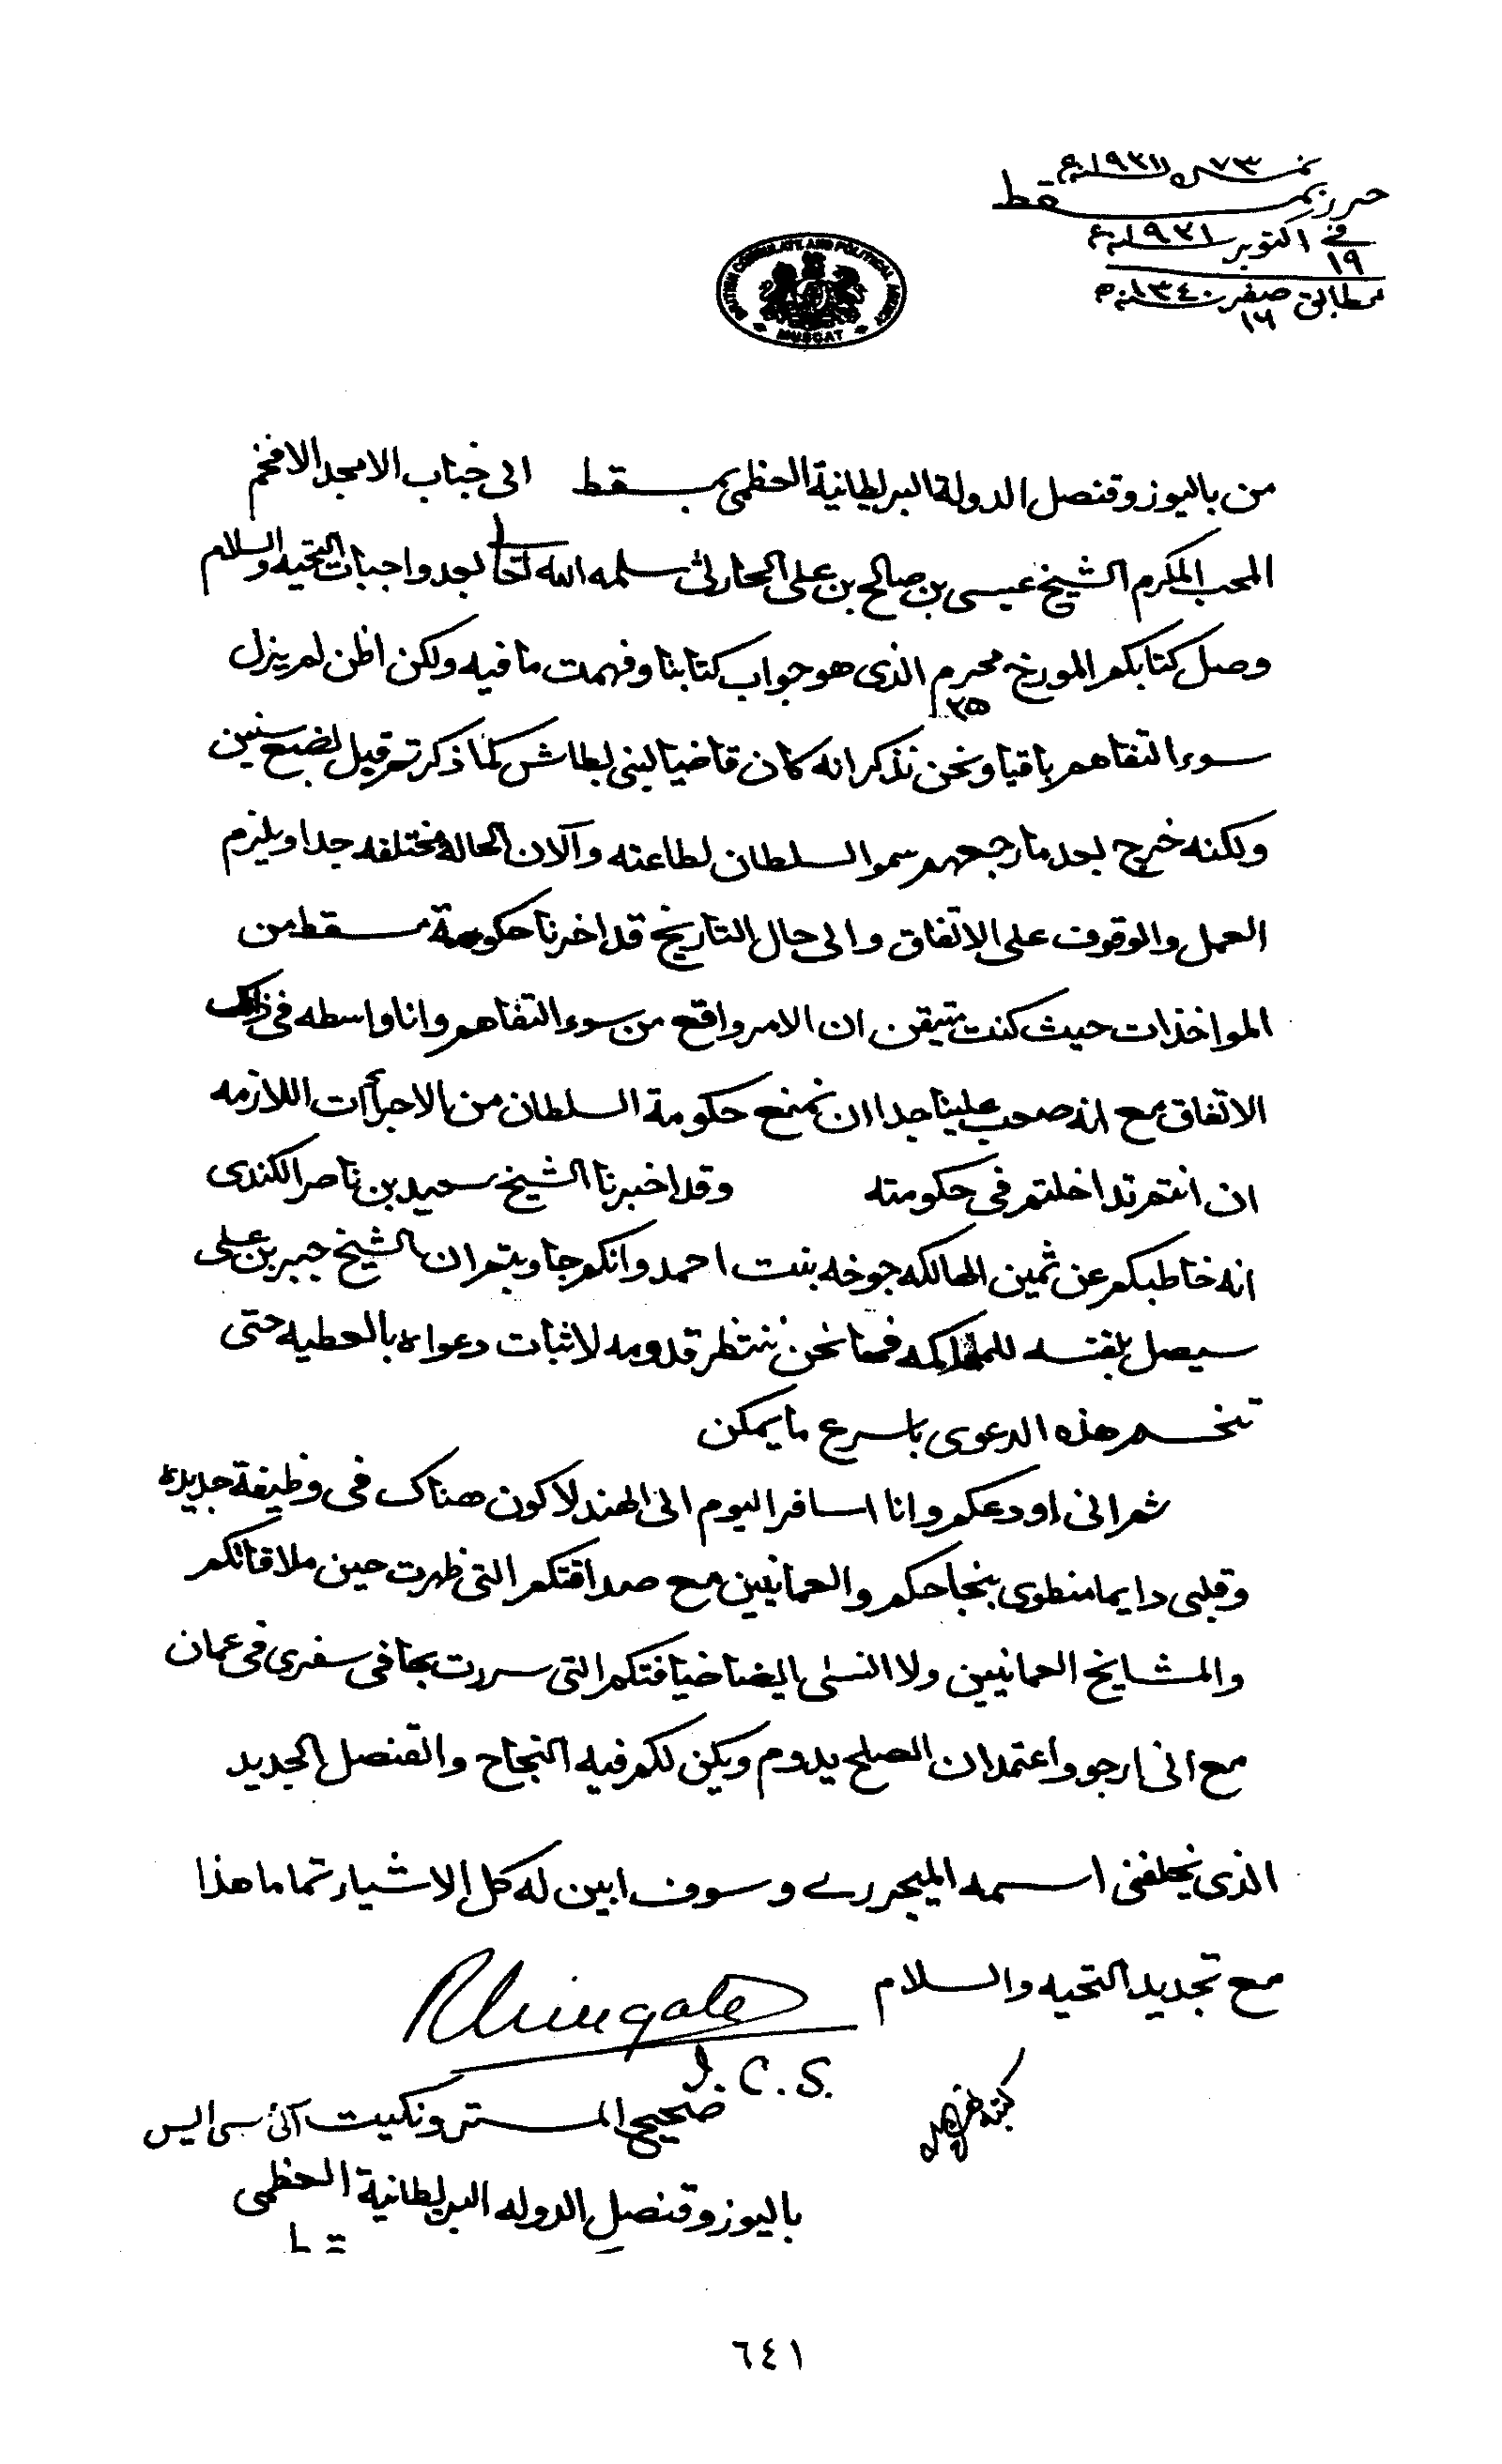 نمـ ٧٣ـرة سنة ١٩٢١ع
حرر بمسقط
في ١٩ اكتوبر سنة ١٩٢١ع
مطابق ١٦ صفر سنة ١٣٤٠ه
BRITISH CONSULATE AND POLITICAL AGENCY
MUSCAT
من باليوز وقنصل الدولة البريطانية العظمى بمسقط الى جناب الامجد الافخم
المحب المكرم الشيخ عيسى بن صالح بن علي الحارثي سلمه الله تعالى بعد واجبات التحيه والسلام
وصل كتابكم المورخ ٢٥ محرم الذى هو جواب كتابنا وفهمت ما فيه ولكن اظن لم يزل
سوء التفاهم باقيا ونحن نذكر انه كان قاضيا لبنى بطاش كما ذكرتم قبل بضع سنين
ولكنه خرج بعد ما رجعهم سمو السلطان لطاعته والآن الحاله مختلفه جدا ويلزم
العمل والوقوف على الاتفاق والى حال التاريخ قد اخرنا حكومة مسقط من
المواخذات حيث كنت متيقن ان الامر واقع من سوء التفاهم وانا واسطه في ذلك
الاتفاق مع انه صعب علينا جدا ان نمنع حكومة السلطان من الاجرأات اللازمه
ان انتم تداخلتم في حكومته وقد اخبرنا الشيخ سعيد بن ناصر الكندى
انه خاطبكم عن ثمين الهالكه جوخه بنت احمد وانكم جاوبتم ان الشيخ جبر بن على
سيصل بنفسه للمحاكمه فها نحن ننتظر قدومه لاثبات دعواه بالعطيه حتى
تنحسم هذه الدعوى باسرع ما يمكن
ثم انى اودعكم وانا اسافر اليوم الى الهند لاكون هناك في وظيفة جديده
وقلبى دايما منطوى بنجاحكم والعمانيين مع صداقتكم التى ظهرت حين ملاقاتكم
والمشايخ العمانيين ولا انسى ايضا ضيافتكم التى سررت بها في سفرى في عمان
مع انى ارجو واعتمد ان الصلح يدوم ويكن لكم فيه النجاح والقنصل الجديد
الذى يخلفنى اسمه الميجر رے وسوف ابين له كل الاشياء تماما هذا
مع تجديد التحيه والسلام
RWingate
I.C.S.
صحيح المستر ونكيت آئى سى ايس
باليوز وقنصل الدوله البريطانية العظمى
٦٤١